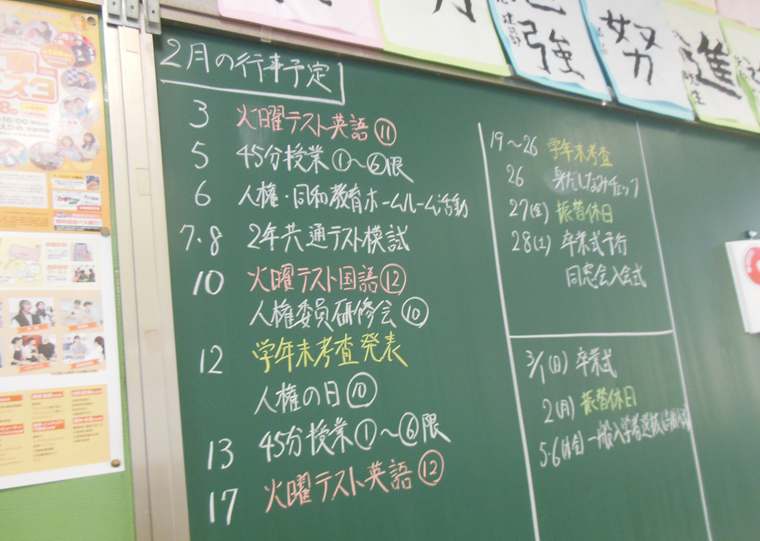 2月の行事予定
3 火曜テスト英語⑪
5 45分授業①~⑥限
6 人権・同和教育ホームルーム活動
7・8 2年共通テスト模試
10 火曜テスト国語⑫
人権委員研修会⑩
12 学年末考査発表
人権の日⑩
13 45分授業①~⑥限
17 火曜テスト英語⑫
19~26 学年末考査
26 身だしなみチェック
27(金) 振替休日
28(土) 卒業式予行
同窓会入会式
3/1(日) 卒業式
2(月) 振替休日
5・6(木金) 一般入学者選抜
強
努
進